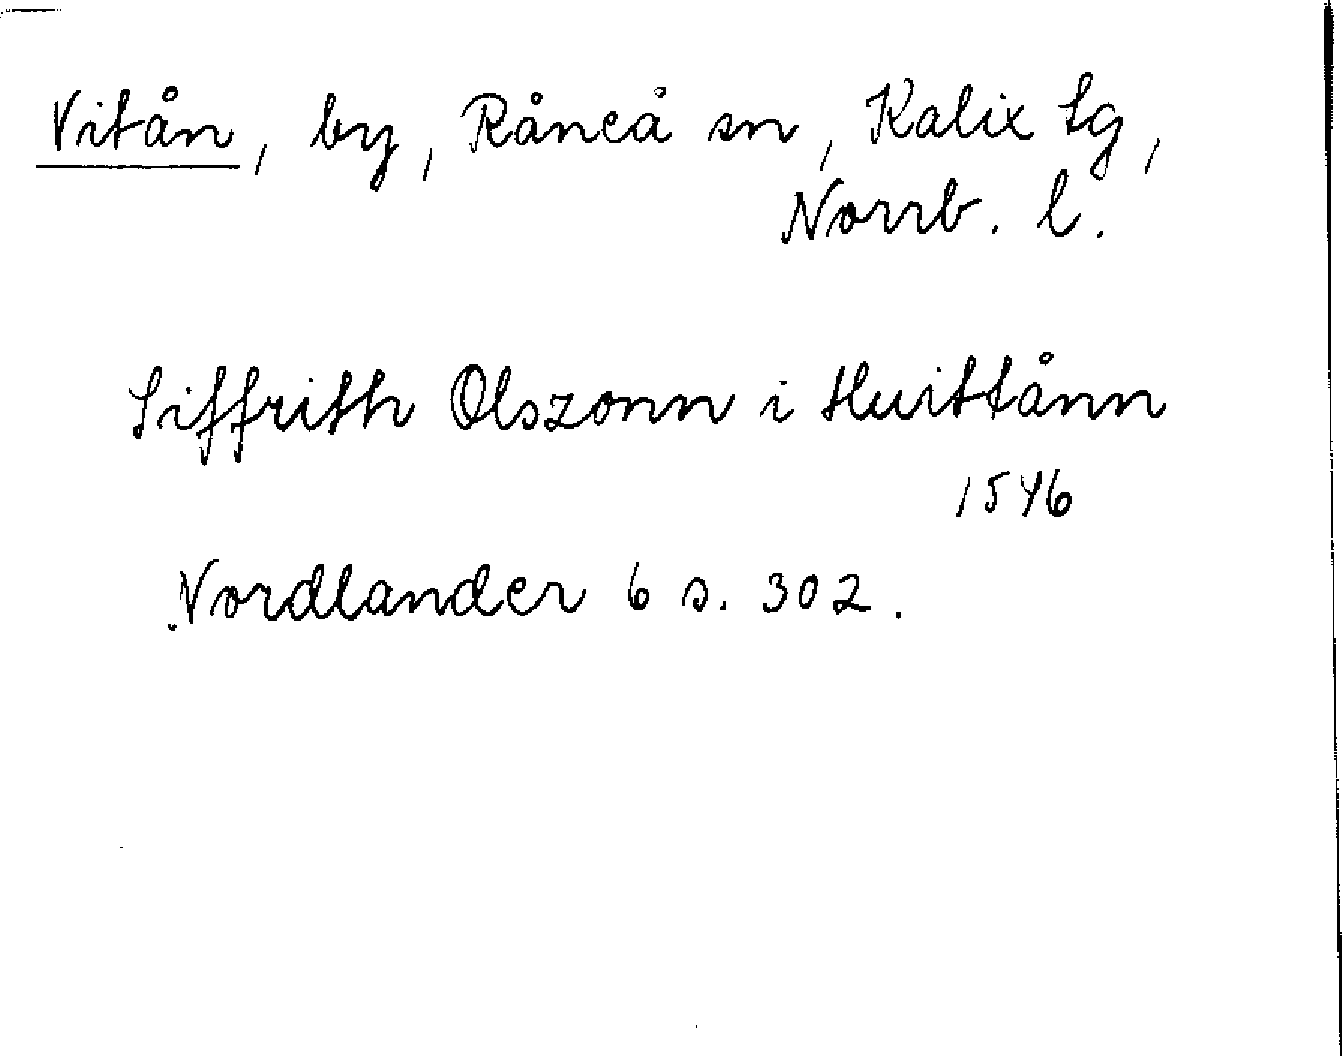 Vitån, by, Råneå sn, Kalix tg,
Norrb. l.
Siffrith Olszonn i Huittånn
1546
Nordlander 6 s. 302.